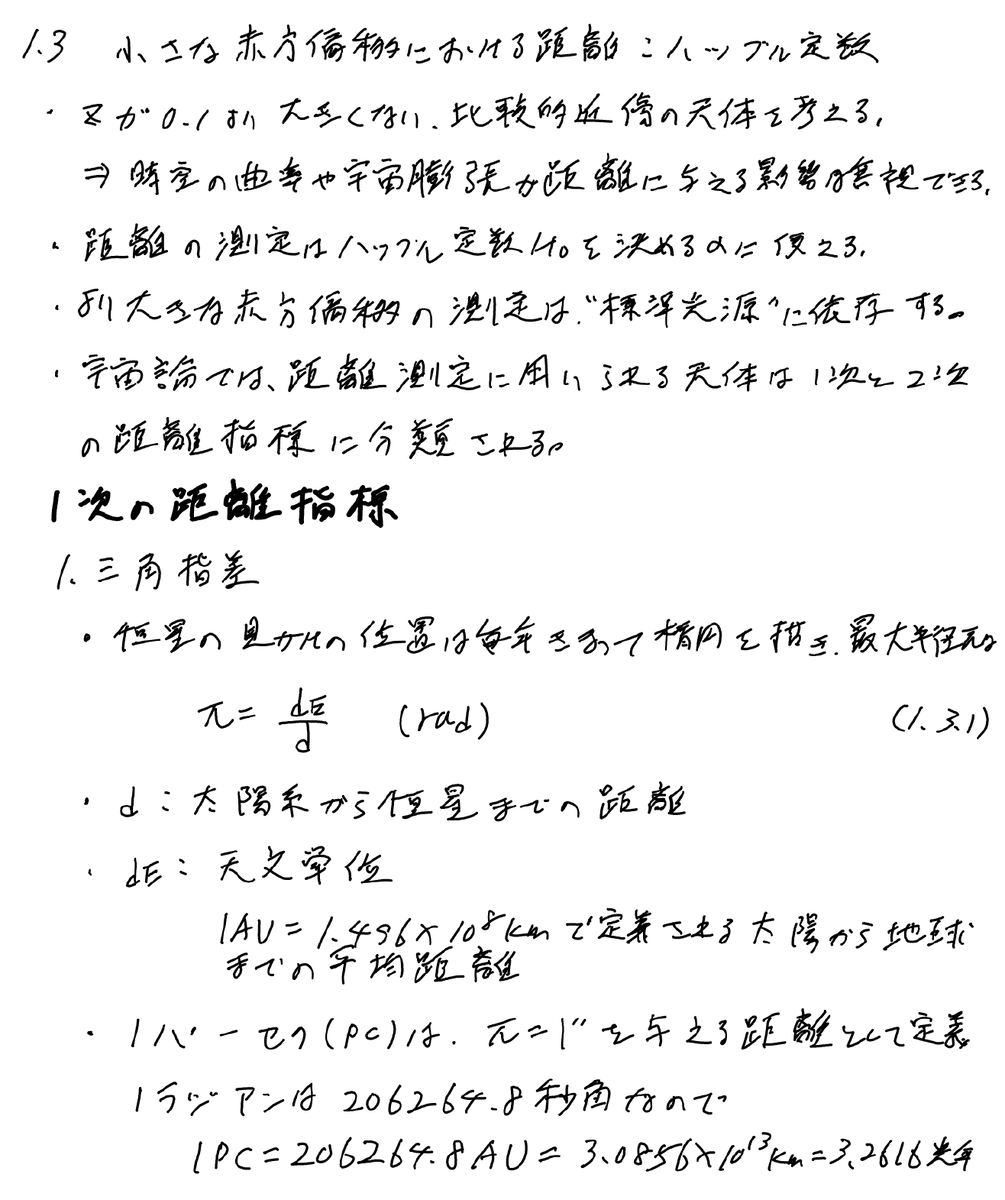 1.3 小さな赤方偏移における距離:ハッブル定数
・zが0.1より大きくない、比較的近傍の天体を考える.
⇒ 時空の曲率や宇宙膨張が距離に与える影響は無視できる.
・距離の測定はハッブル定数H₀を決めるのに使える.
・より大きな赤方偏移の測定は、"標準光源"に依存する。
・宇宙論では、距離測定に用いられる天体は1次と2次
の距離指標に分類される。
1次の距離指標
1. 三角視差
・恒星の見かけの位置は毎年きまって楕円を描き、最大半径πは
π = dE/d (rad) (1.3.1)
・d:太陽系から恒星までの距離
・dE:天文単位
1AU = 1.496×10⁸km で定義される太陽から地球
までの平均距離
・1パーセク(PC)は、π=1″を与える距離として定義
1ラジアンは 206264.8秒角なので
1PC = 206264.8AU = 3.0856×10¹³km = 3.2616光年